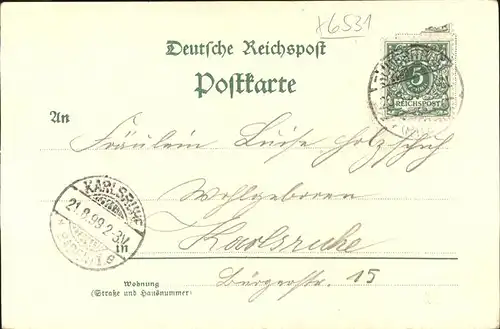 x6531
Deutsche Reichspost
Postkarte
5
REICHSPOST
An
Fräulein Luise Holzschuh
Wohlgeboren
KARLSRUHE
21.8.99.2-3N.
in Karlsruhe
Wohnung
(Straße und Hausnummer)
Bürgerstr. 15